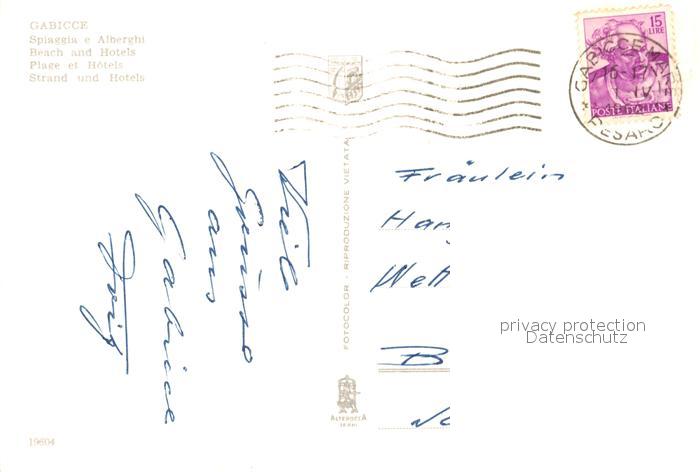 GABICCE
Spiaggia e Alberghi
Beach and Hotels
Plage et Hôtels
Strand und Hotels
15
LIRE
POSTE ITALIANE
GABICCE MARE
PESARO
Viele
Grüsse
aus
Gabicce
FOTOCOLOR - RIPRODUZIONE VIETATA
ALTEROCCA
TERNI
Fräulein
Han
Wett
B
privacy protection
Datenschutz
19604